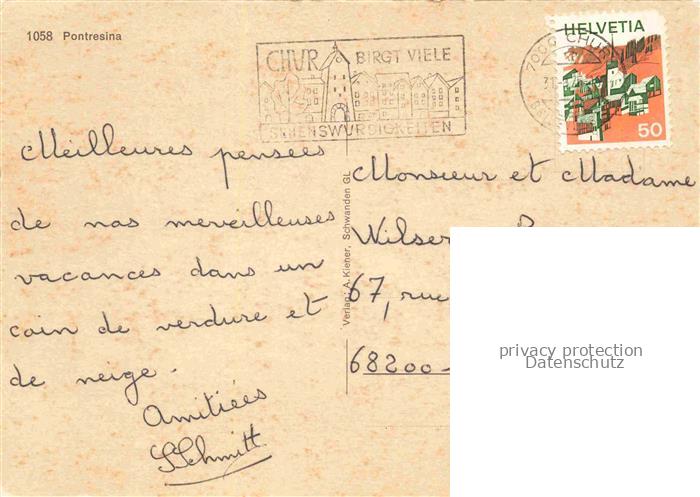 1058 Pontresina
CHUR BIRGT VIELE
SEHENSWÜRDIGKEITEN
7000 CHUR
HELVETIA
50
Meilleures pensées
de nos merveilleuses
vacances dans un
coin de verdure et
de neige.
Amitiées
SSchmitt
Verlag: A. Kiener, Schwanden GL
Monsieur et Madame
Wilser
67, rue
68200-
privacy protection
Datenschutz